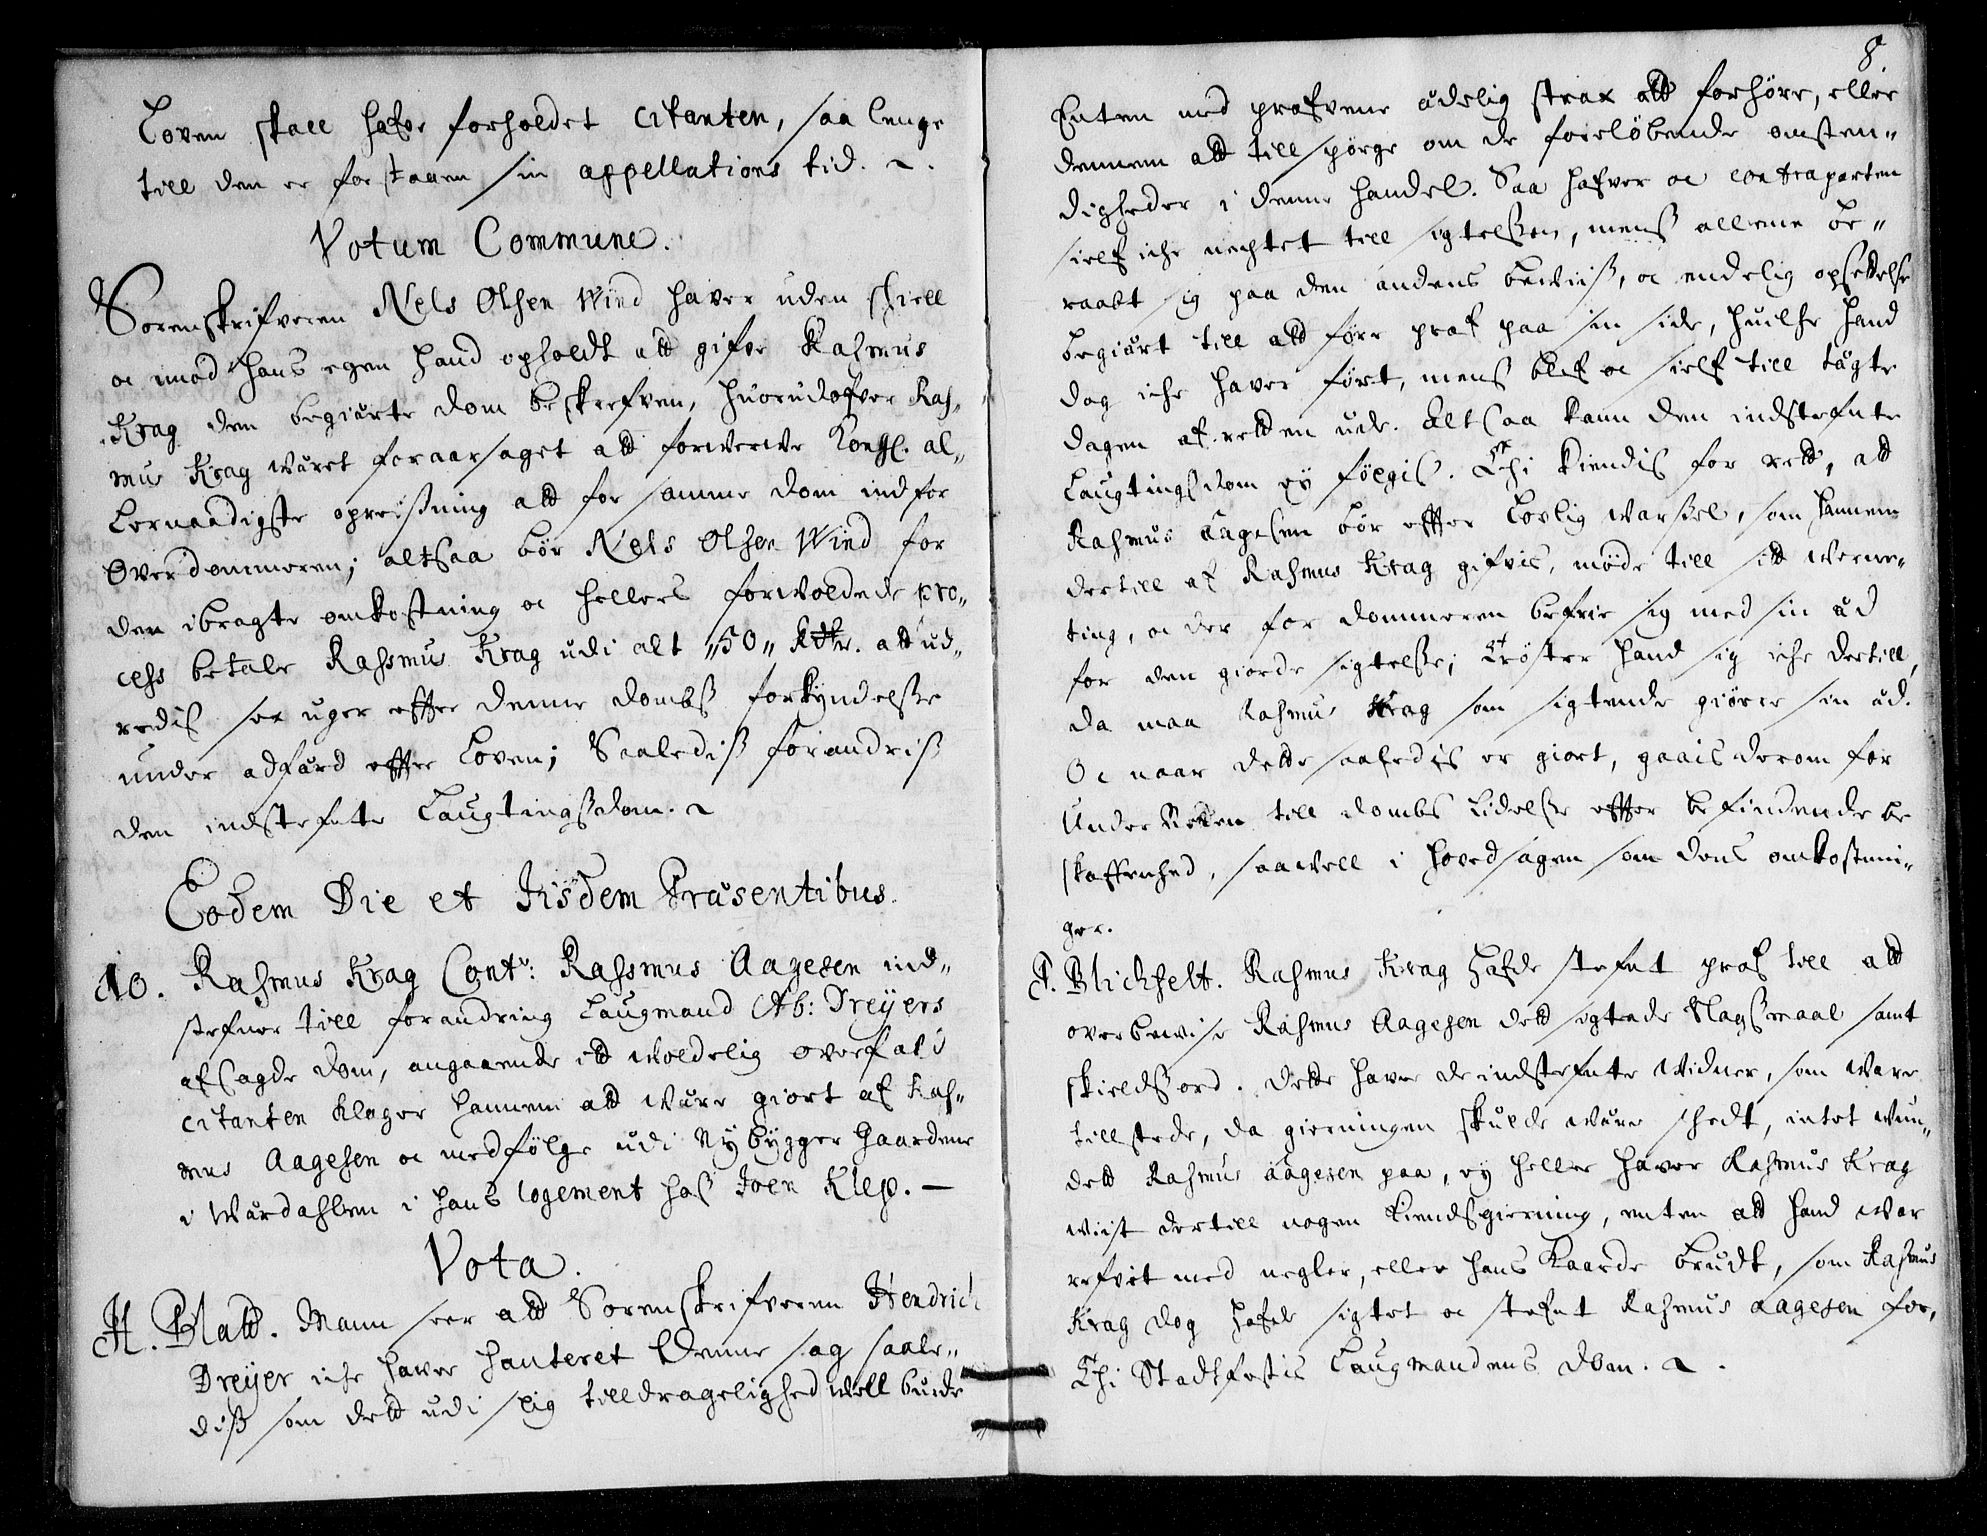 Loven skall hafve forholdet Citanten, saa lenge
till den er forstaaen sin appellations tid.
Votum Commune.
Sorenskrifveren Nels Olsen Wind haver uden skiell
oc imod hans egen haand opholdt att gifve Rasmus
Krag den begiærte dom beskrefven, huorudofver Ras„
mus Krag været foraarsaget att forverve Kongl. al„
lernaadigste opreisning att for samme dom indfor
Overdommeren; altsaa bør Nels Olsen Wind for
den ibragte omkostning oc hellers forvoldede pro„
cess betale Rassmus Krag udi alt „50„ Rdr. att ud„
redis sex uger effter denne dombs forkyndelsse
under adfærd effter Loven; Saalediss forandriss
den indstefnte Laugtingsdom.
Eodem Die et Iisdem Præsentibus.
10. Rasmus Krag Contr: Rassmus Aagesen ind„
stefner till forandring Laugmand Ab: Dreyers
afsagde dom, angaaende ett voldelig overfald
citanten klager hannem att være giort af Ras„
mus Aagesen oc medfølge udi Nybygger Gaardene
i Værdahlen i hans logement hos Joen Klep. —
Vota.
H. Blatt. Mann seer att Sorenskrifveren Hendrich
Dreyer iche haver hanteret denne sag saale„
diss som dett udi slig tilldragelighed vell burde
8.
Enten med prøfvene ædelig strax att forhøre, eller
dennem att till spørge om de foreløbende omsten„
digheder i denne handel. Saa hafver oc contraparten
sielf iche nechtet till sigtelssen, mens allene be„
raabt sig paa den andens beviis, oc endelig opsettelse
begiært till att føre prof paa sin side, huilche hand
dog iche haver ført, mens blef oc sielf till tægte
dagen af retten ude. Altsaa kann den indstefnte
Laugtingsdom ey følgis. Thi kiendis for rett, att
Rasmus Aagesen bør effter Lovlig varssel, som hannem
dertill af Rasmus Krag gifvis, møde till sitt verne„
ting, oc der for dommeren befrie sig med sin æd
for den giorde sigtelsse; Trøster hand sig iche dertill,
da maa Rasmus Krag som sigtende giøre sin æd.
Oc naar dette saaledis er giort, gaais derom for
Under Retten till dombs lidelsse effter befindende be
skaffenhed, saavell i hovedsagen som dens omkostnin„
ger.
P. Blichfelt. Rasmus Krag hafde stefnt prof till att
overbevise Rasmus Aagesen dett sigtede klagsmaal samt
skieldsord. Dette haver de indstefnte Vidner, som vare
tillstede, da gierningen skulde være skedt, intet vun„
dett Rasmus Aagesen paa, ey heller haver Rasmus Krag
viist dertill nogen kiendsgierning, enten att hand var
refvet med negler, eller hans kaarde brudt, som Rasmus
Krag dog hafde sigtet oc stefnt Rasmus Aagesen for,
Thi Stadtfestis Laugmandens dom.